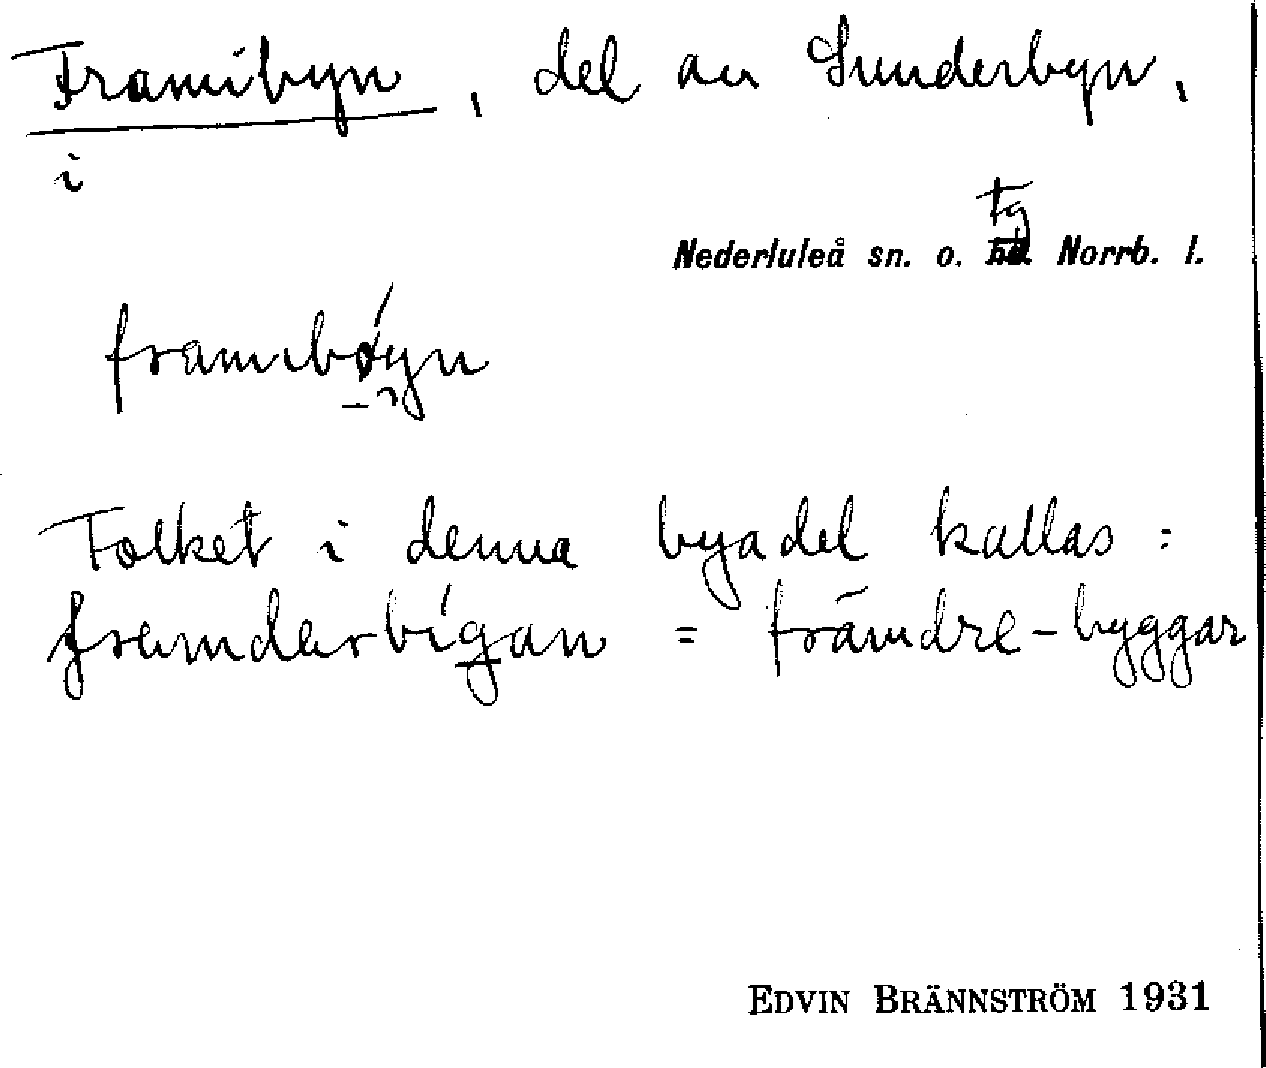 Framibyn, del av Sunderbyn,
i
tg
Nederluleå sn. o. hd. Norrb. l.
framıbǿyn
Folket i denna byadel kallas:
fremdarbígan = främdre-byggar
EDVIN BRÄNNSTRÖM 1931